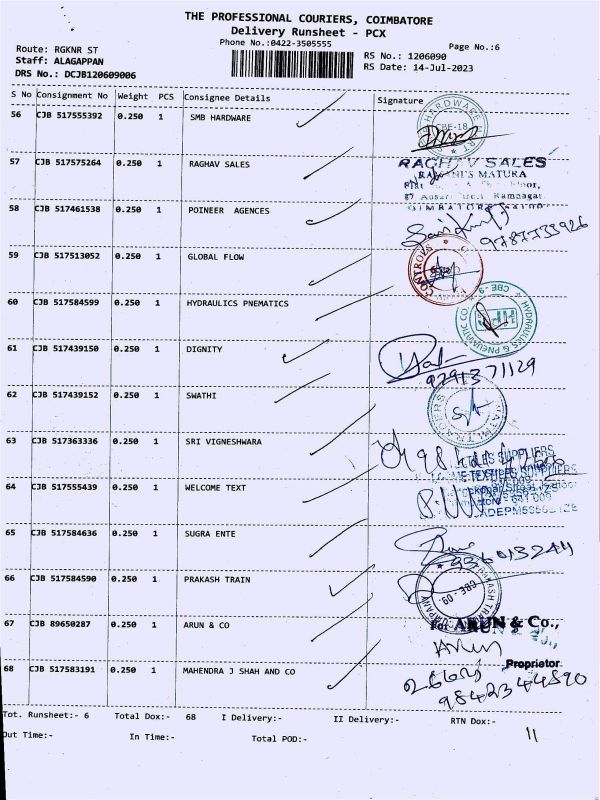 THE PROFESSIONAL COURIERS, COIMBATORE
Delivery Runsheet - PCX
Phone No.:0422-3505555
Page No.:6
Route: RGKNR ST
Staff: ALAGAPPAN
DRS No.: DCJB120609006
RS No.: 1206090
RS Date: 14-Jul-2023
S No Consignment No Weight PCS Consignee Details Signature
56 CJB 517555392 0.250 1 SMB HARDWARE
HARDWARE
CBE-18
57 CJB 517575264 0.250 1 RAGHAV SALES
RAGHAV SALES
MATURA
Ramnagar
58 CJB 517461538 0.250 1 POINEER AGENCES
9787733926
59 CJB 517513052 0.250 1 GLOBAL FLOW
CONTROLS
60 CJB 517584599 0.250 1 HYDRAULICS PNEMATICS
HYDRAULICS & PNEUMATIC CO
CBE-9
61 CJB 517439150 0.250 1 DIGNITY
9291371129
62 CJB 517439152 0.250 1 SWATHI
TRADERS
63 CJB 517363336 0.250 1 SRI VIGNESHWARA
64 CJB 517555439 0.250 1 WELCOME TEXT
SUPPLIERS
65 CJB 517584636 0.250 1 SUGRA ENTE
66 CJB 517584590 0.250 1 PRAKASH TRAIN
67 CJB 89650287 0.250 1 ARUN & CO
For ARUN & Co.,
Arun
Proprietor
68 CJB 517583191 0.250 1 MAHENDRA J SHAH AND CO
9842344890
Tot. Runsheet:- 6 Total Dox:- 68 I Delivery:- II Delivery:- RTN Dox:-
Out Time:- In Time:- Total POD:-
11